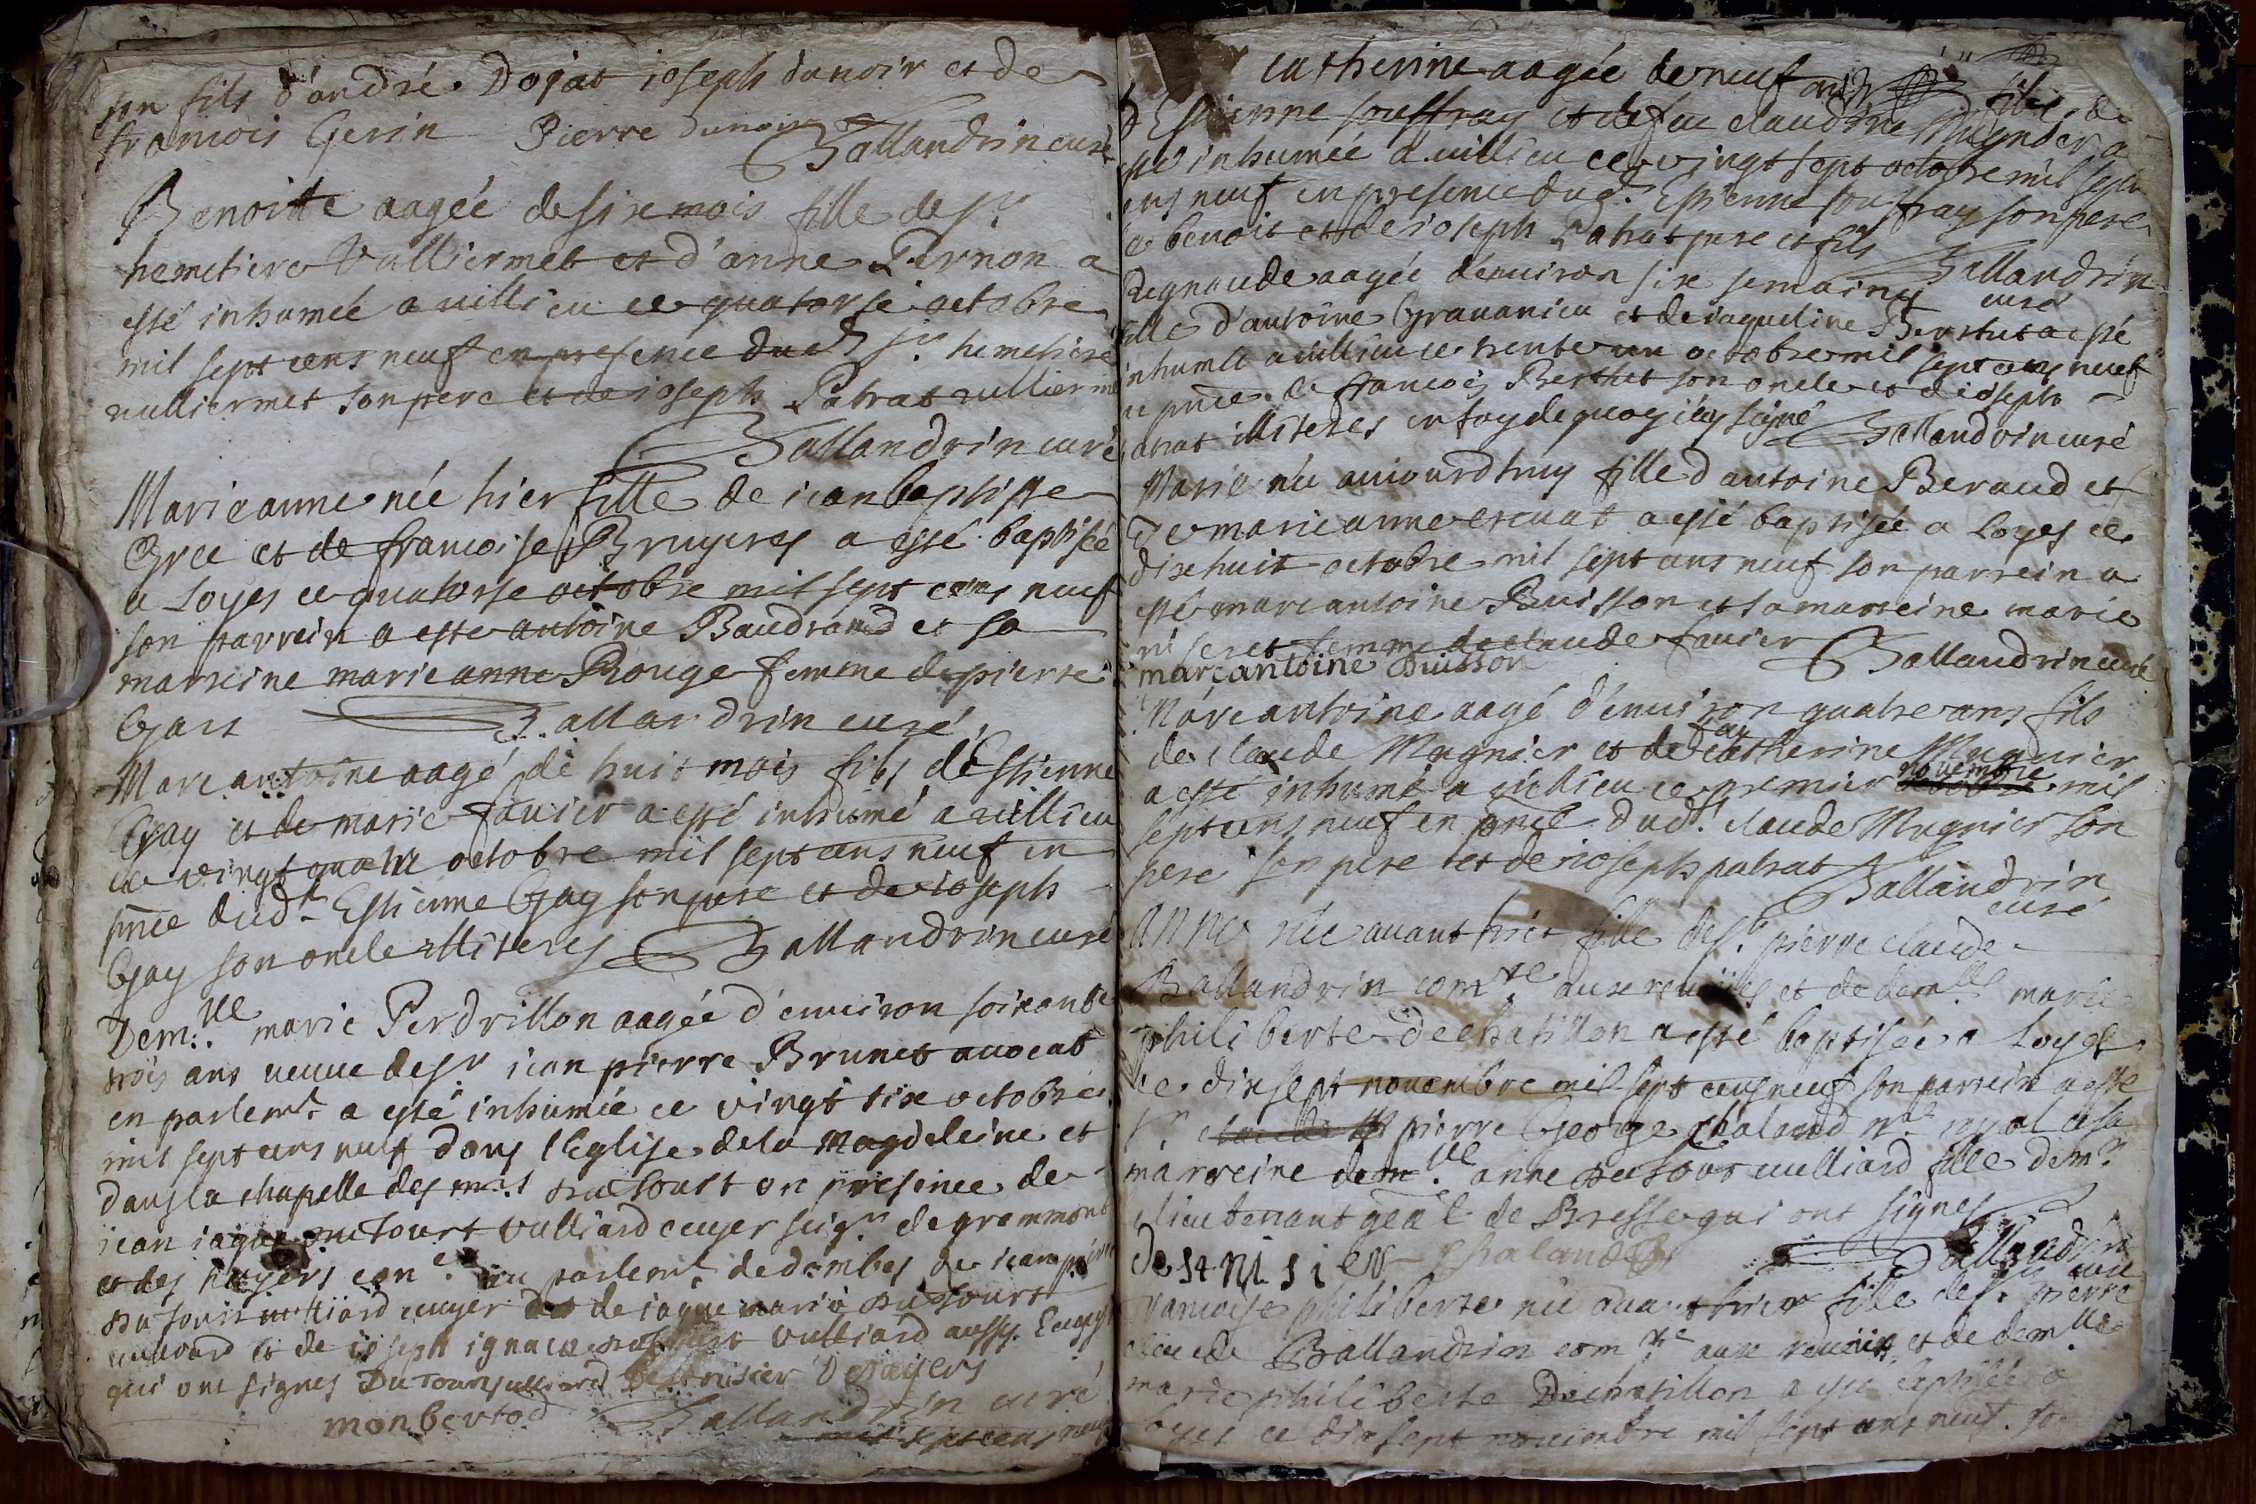 son fils d'andré Dojat ioseph dunoir et de
francois Gerin Pierre dunoir Ballandrin curé
Benoitte aagée de six mois fille de sr
hemetiere Vulliermet et d'anne Pernon a
esté inhumée a villieu ce quatorse octobre
mil sept cens neuf en presence dud. sr hemetiere
vulliermet son pere et de ioseph Patrat
Ballandrin curé
Marie anne née hier fille de iean baptiste
Gree et de francoise Bruyeres a esté baptisée
a Loyes ce quatorse octobre mil sept cens neuf
son parrein a esté antoine Baudrand et sa
marreine marie anne Rouge femme de pierre
Gars Ballandrin curé
Marc antoine aagé de huit mois fils d'Estienne
Gay et de marie favier a esté inhumé a villieu
ce vingt octobre mil sept cens neuf en
pnce dud. Estienne Gay son pere et de ioseph
Gay son oncle illiteres Ballandrin curé
Dem.lle marie Perdrillon aagée d'environ soixante
trois ans veuve de sr iean pierre Brunet avocat
en parlemt. a esté inhumée ce vingt six octobre
mil sept cens neuf dans l'Eglise de la Magdeleine et
dans la chapelle des mrs Du Tourt en presence de
iean iaque Du Tourt Vulliard ecuyer seigr de grammont
et des hayers con.er au parlemt. de dombes de iean pierre
Du Tourt vulliard ecuyer de iaque marie Du Tourt
vulliard et de ioseph ignace Du Tourt Vulliard aussy Ecuyer
qui ont signes Du Tour vulliard De St nisier Deshayers
monbertod Ballandrin curé
mil sept cens neuf
catherine aagée de neuf ans fille de
Estienne souffray et de feu claudine Mugnier a
esté inhumée a villieu ce vingt sept octobre mil sept
cens neuf en presence dud. Estienne souffray son pere
de benoit et de ioseph Patrat pere et fils Ballandrin
curé
Regnaude aagée d'environ six semaines
fille d'antoine Gravanieu et de iaqueline Berthet a esté
inhumée a villieu ce trente un octobre mil sept cens neuf
en pnce de francois Berthet son oncle et de ioseph
patrat illiteres en foy de quoy i'ay signé Ballandrin curé
Marie née auiourdhuy fille d'antoine Beraud et
de marie anne ercuat a esté baptisée a Loyes ce
dixhuit octobre mil sept cens neuf son parrein a
esté marc antoine Buisson et sa marreine marie
niseret femme de claude favier Ballandrin curé
marc antoine Buisson
Marc antoine aagé d'environ quatre ans fils
de claude Mugnier et de feu catherine Mugnier
a esté inhumé a villieu ce premier novembre mil
sept cens neuf en pnce dud. claude Mugnier son
pere son pere et de ioseph patrat Ballandrin
curé
Anne née avant hier fille de sr pierre claude
Ballandrin com.re aux reveües et de dem.lle marie
philiberte De chatillon a esté baptisée a Loyes
ce dixsept novembre mil sept cens neuf son parrein a esté
sr pierre George chaland nre royal et sa
marreine dem.lle anne Du Tour vulliard fille de mr
lieutenant geal de Bresse qui ont signes
De st nisier Chaland Ballandrin
curé
francoise philiberte née avant hier fille de sr pierre
claude Ballandrin com.re aux reveües et de dem.lle
marie philiberte De chatillon a esté baptisée a
Loyes ce dixsept novembre mil sept cens neuf. son